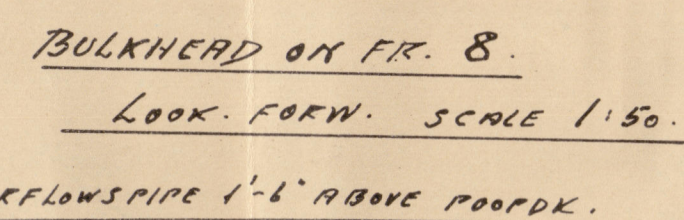 BULKHEAD ON FR. 8.
LOOK. FORW. SCALE 1:50.
RFLOWSPIPE 1'-6" ABOVE POOPDK.